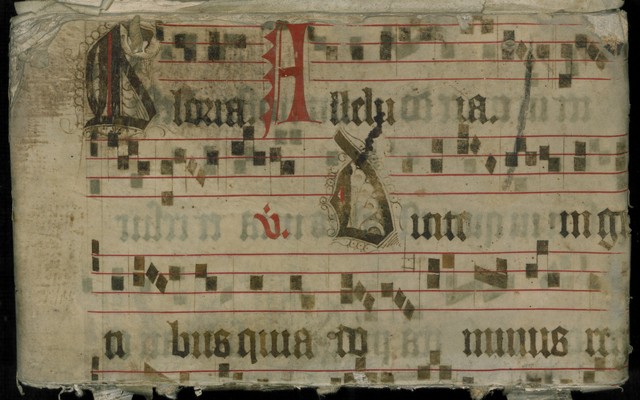 Gloria. Allelu ia.
v. Dicite in ge
n tibus quia do minus re